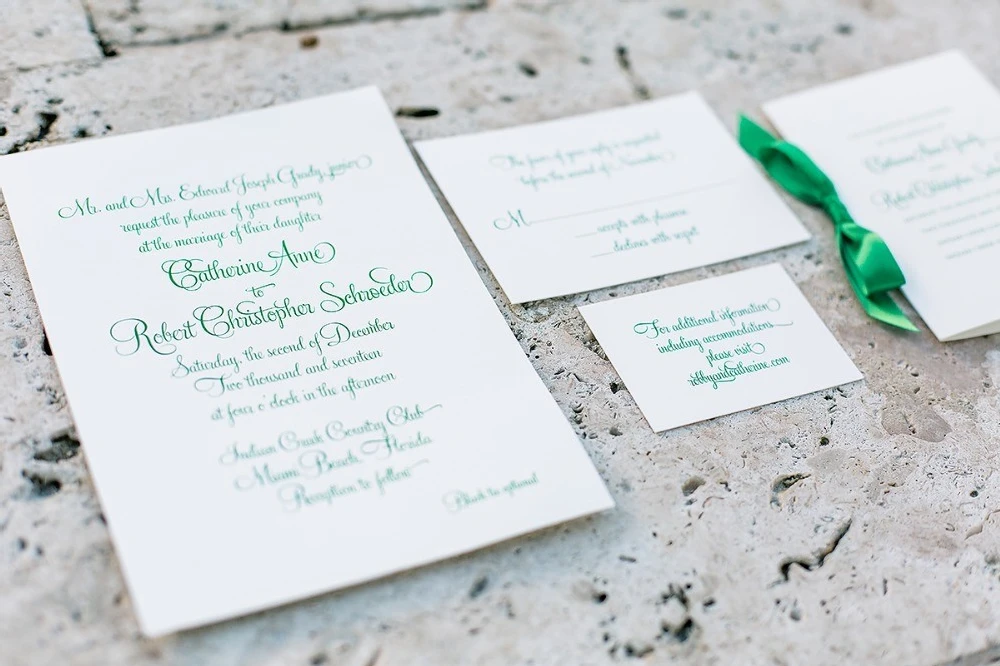 Mr. and Mrs. Edward Joseph Grady, junior
request the pleasure of your company
at the marriage of their daughter
Catherine Anne
to
Robert Christopher Schroeder
Saturday, the second of December
Two thousand and seventeen
at four o'clock in the afternoon
Indian Creek Country Club
Miami Beach, Florida
Reception to follow
Black tie optional
The favor of your reply is requested
before the second of November
M
accepts with pleasure
declines with regret
For additional information
including accommodations
please visit
robbyandcatherine.com
Catherine Anne Grady
Robert Christopher